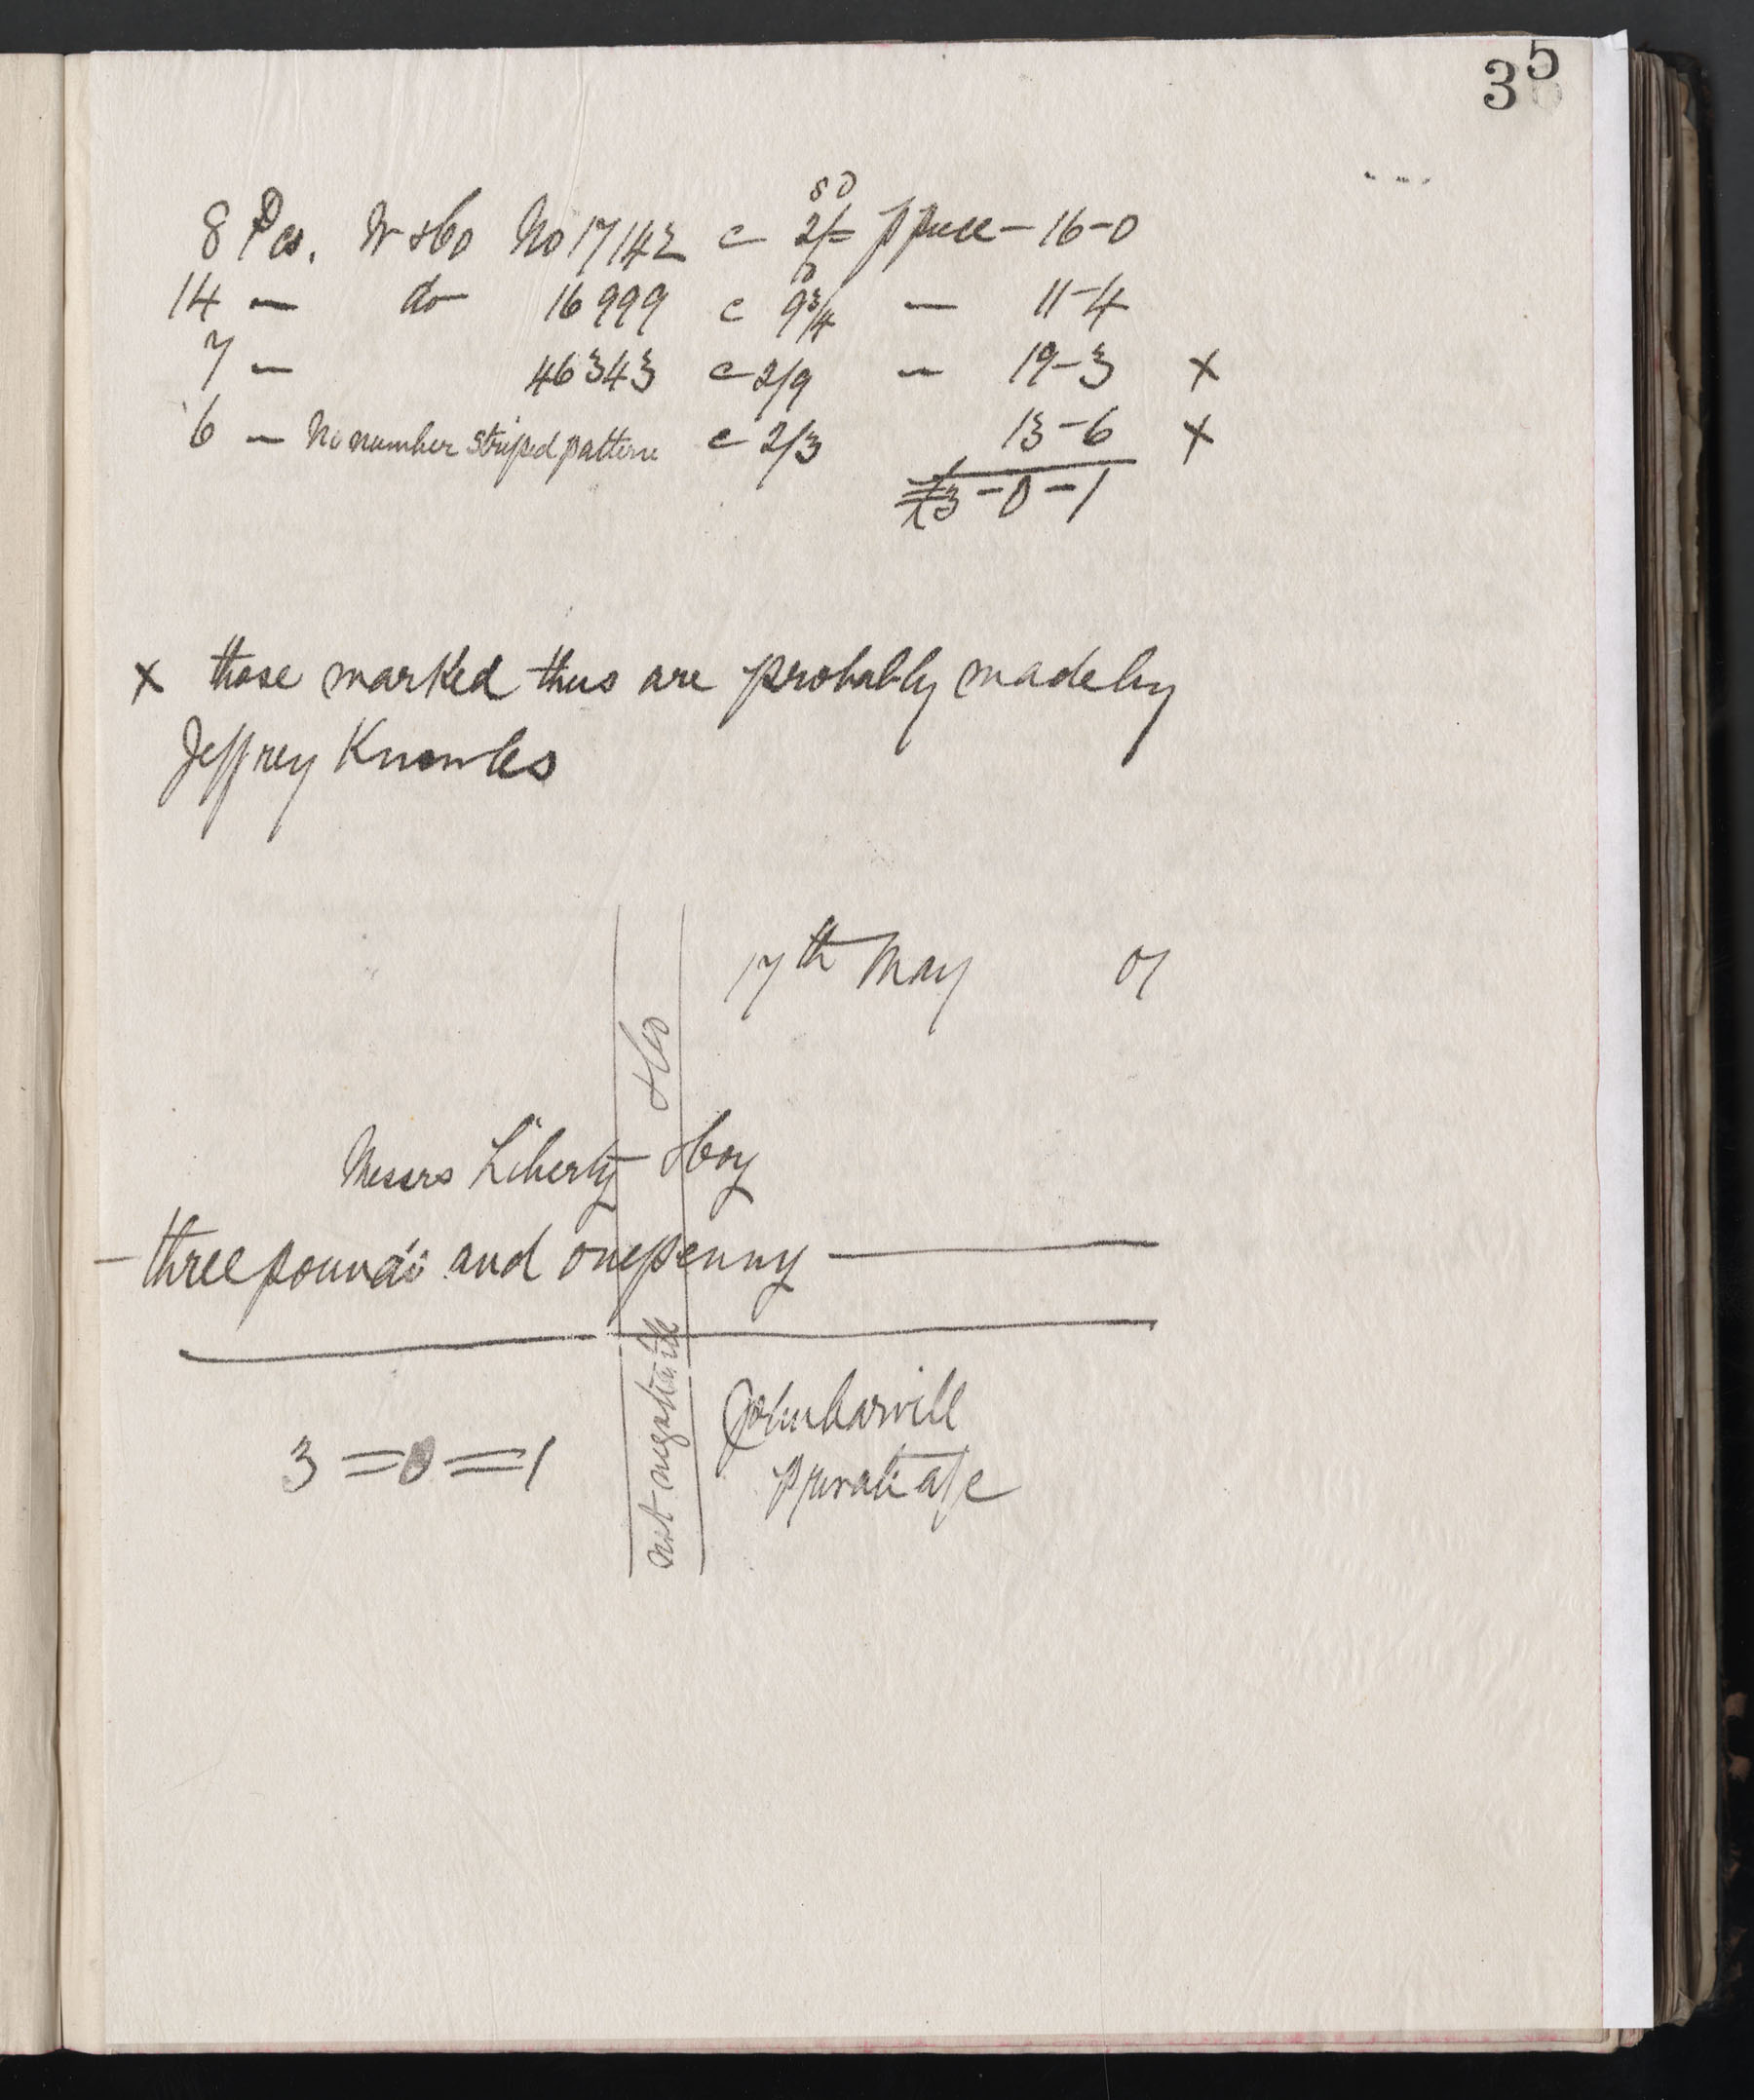 35
8 Pcs. W & Co No 17142 @ 2/= p piece - 16-0
s d
14 — do 16999 @ 9 3/4 — 11-4
d
7 — 46343 @ 2/9 — 19-3 x
6 — No number striped pattern @ 2/3 13-6 x
£3-0-1
x those marked thus are probably made by
Jeffrey Knowles
17th May 07
& Co
Messrs Liberty & Coy
- three pounds and one penny -
not negotiable
3=0=1
John
private a/c